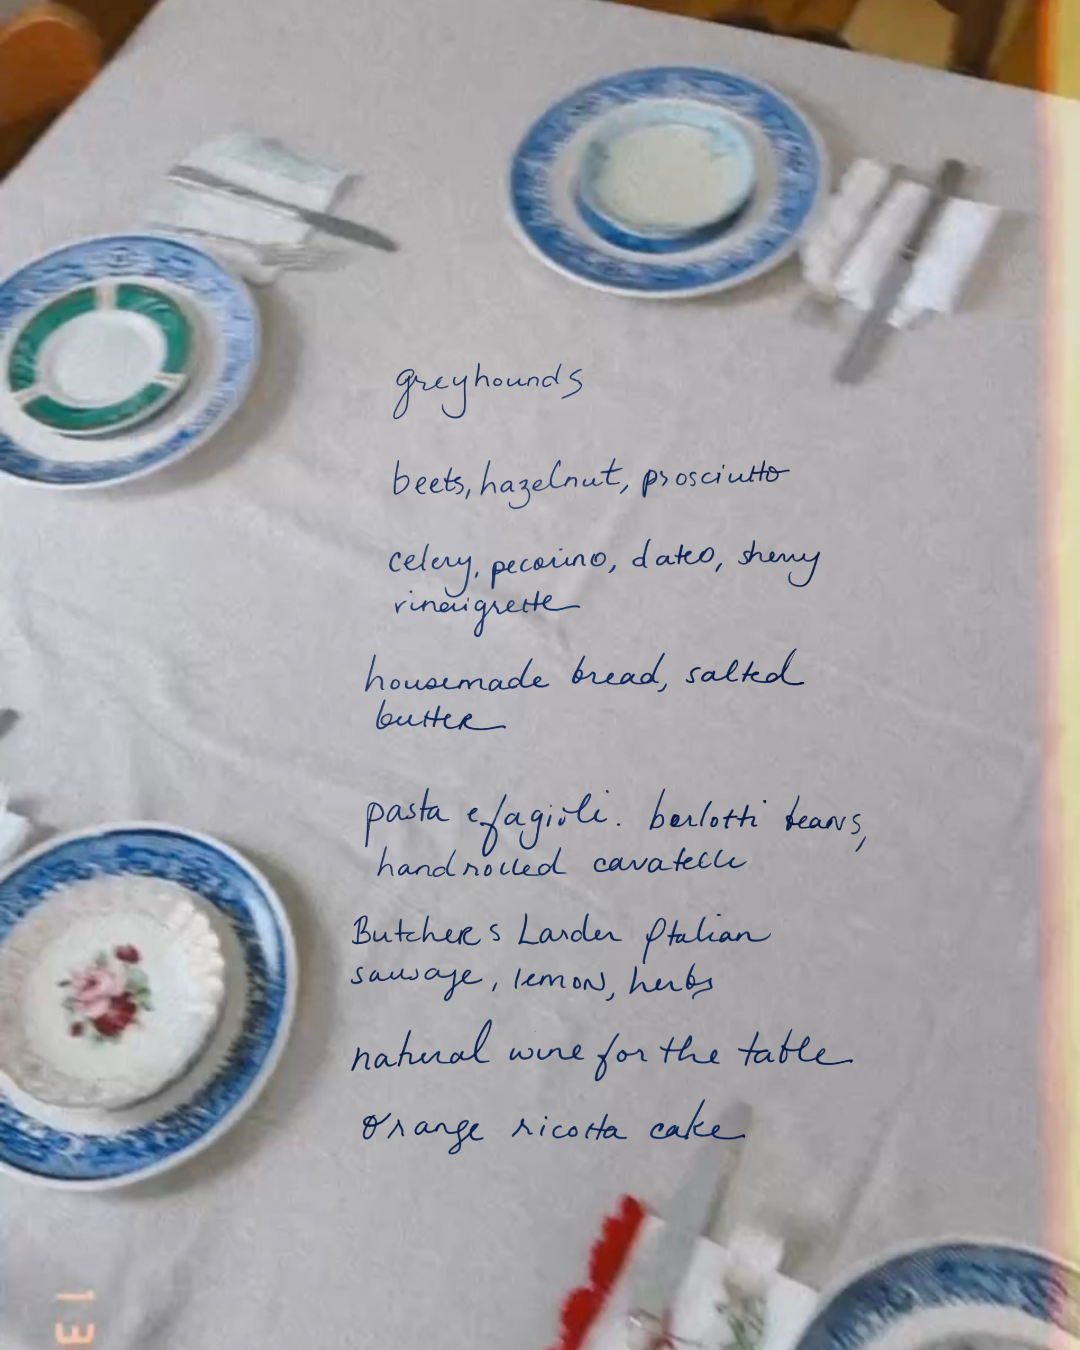 greyhounds
beets, hazelnut, prosciutto
celery, pecorino, dates, sherry
vinaigrette
housemade bread, salted
butter
pasta e fagioli. borlotti beans,
handrolled cavatelli
Butchers Larder Italian
sausage, lemon, herbs
natural wine for the table
orange ricotta cake
13